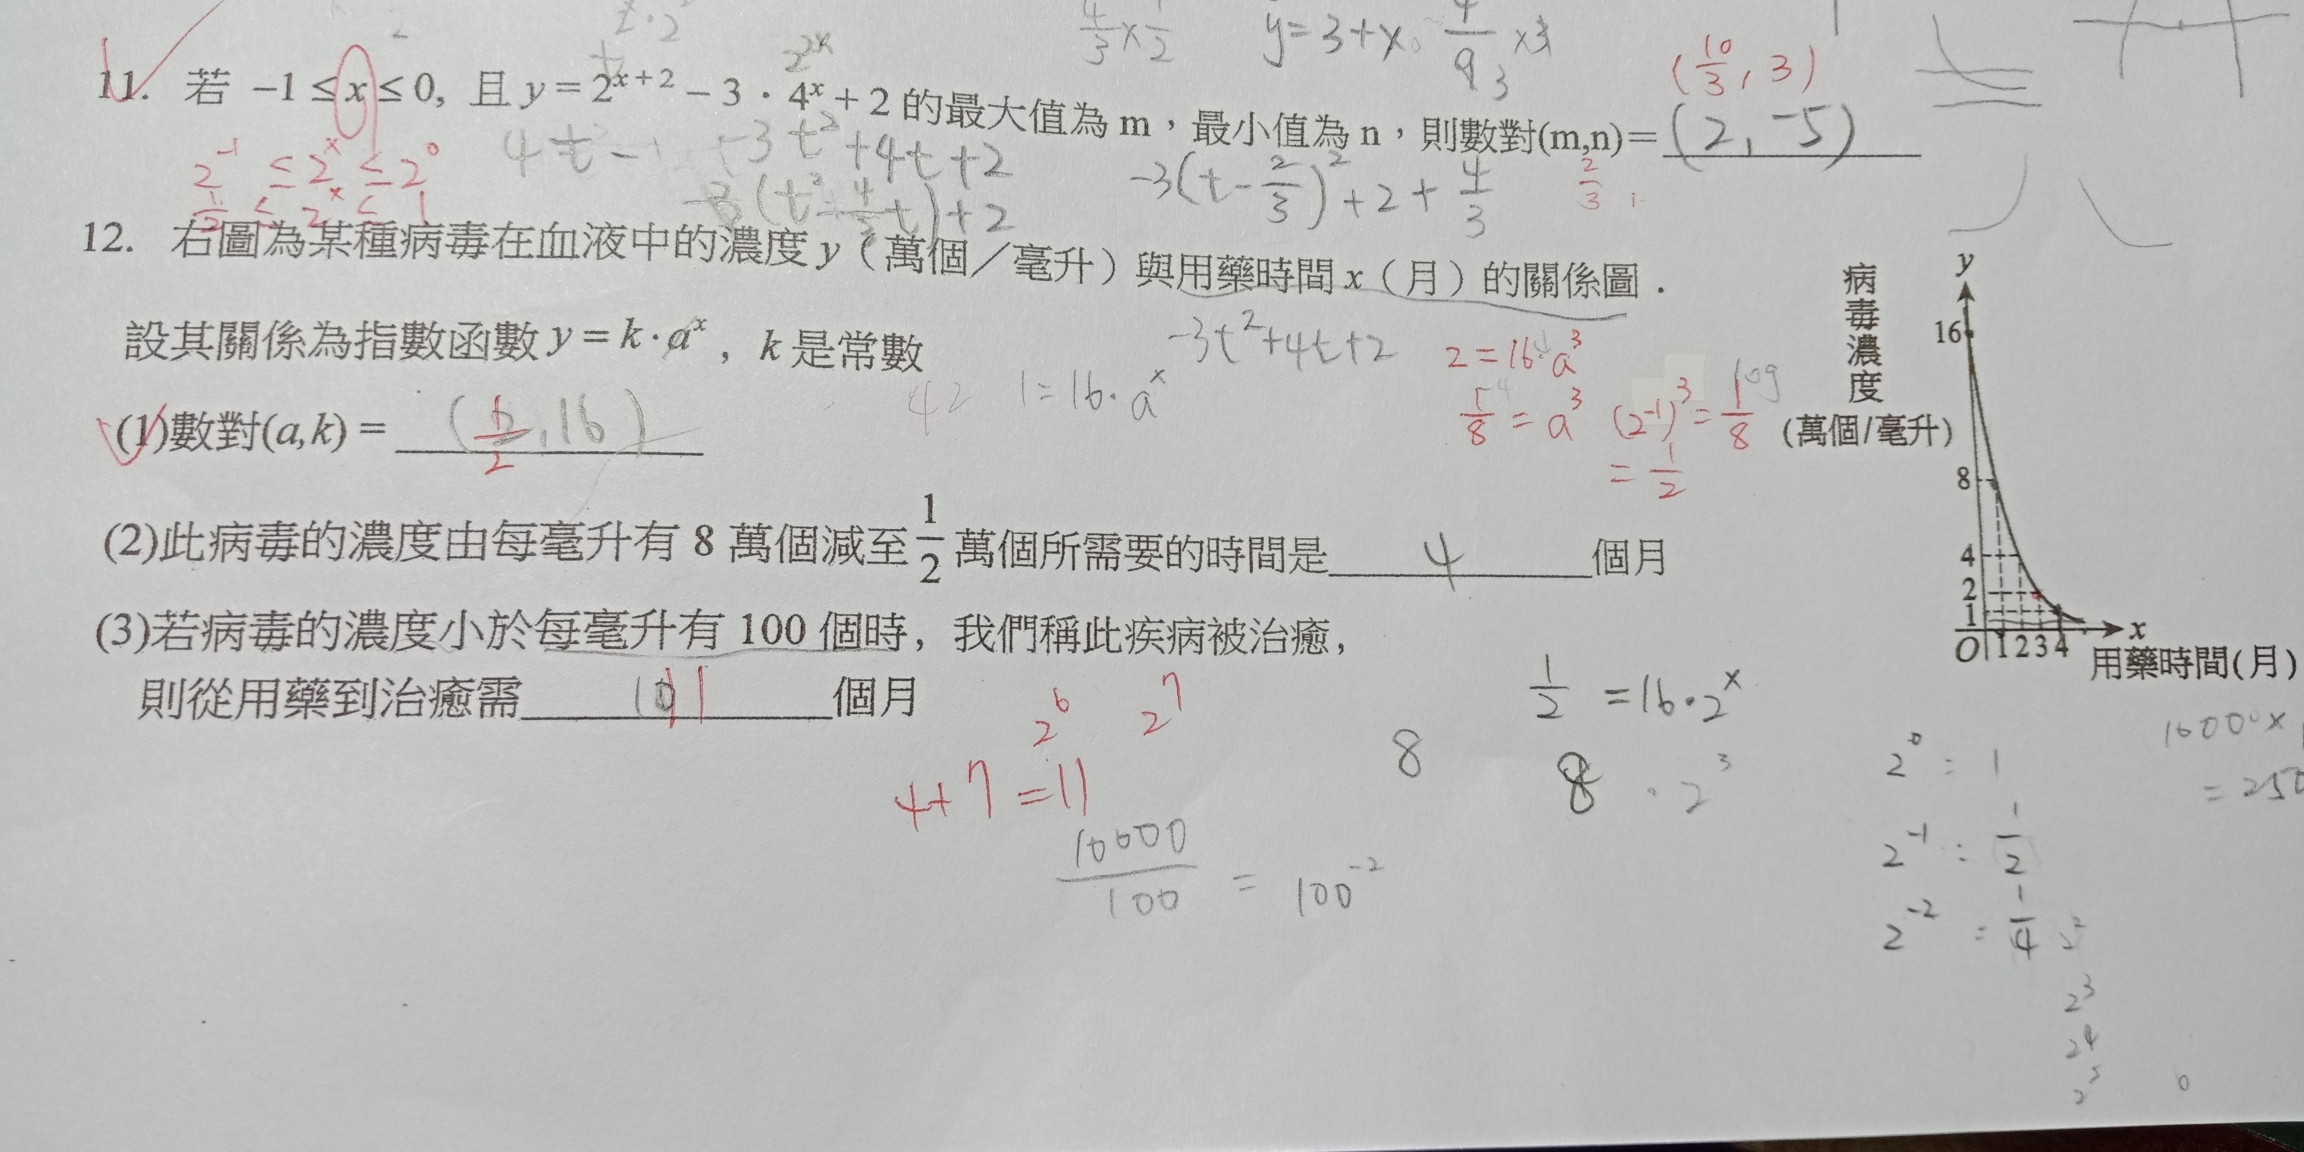 4/3 × 1/2
y=3+x
4/9 ×3
2^{2x}
(10/3, 3)
11. 若 −1 ≤ x ≤ 0, 且 y = 2^{x+2} − 3 · 4^x + 2 的最大值為 m，最小值為 n，則數對(m,n)= (2, -5)
2^{-1} ≤ 2^x ≤ 2^0
1/2 ≤ 2^x ≤ 1
-3t²+4t+2
-3(t²-4/3t)+2
-3(t-2/3)²+2+4/3
2/3
12. 右圖為某種病毒在血液中的濃度 y（萬個／毫升）與用藥時間 x（月）的關係圖．
設其關係為指數函數 y = k · a^x , k 是常數
-3t²+4t+2
2=16·a³
42
1=16·a^x
1/8 = a³
(2^{-1})³ = 1/8
= 1/2
(1)數對(a,k) = (1/2, 16)
(2)此病毒的濃度由每毫升有 8 萬個減至 1/2 萬個所需要的時間是 4 個月
(3)若病毒的濃度小於每毫升有 100 個時，我們稱此疾病被治癒，
則從用藥到治癒需 11 個月
病毒濃度
(萬個/毫升)
y
16
8
4
2
1
O 1 2 3 4 x
用藥時間(月)
2^6 2^7
4+7=11
10000/100 = 100^{-2}
8
1/2 = 16·2^x
8 · 2^3
2^0 = 1
2^{-1} = 1/2
2^{-2} = 1/4
2^2
2^3
2^4
2^5
6